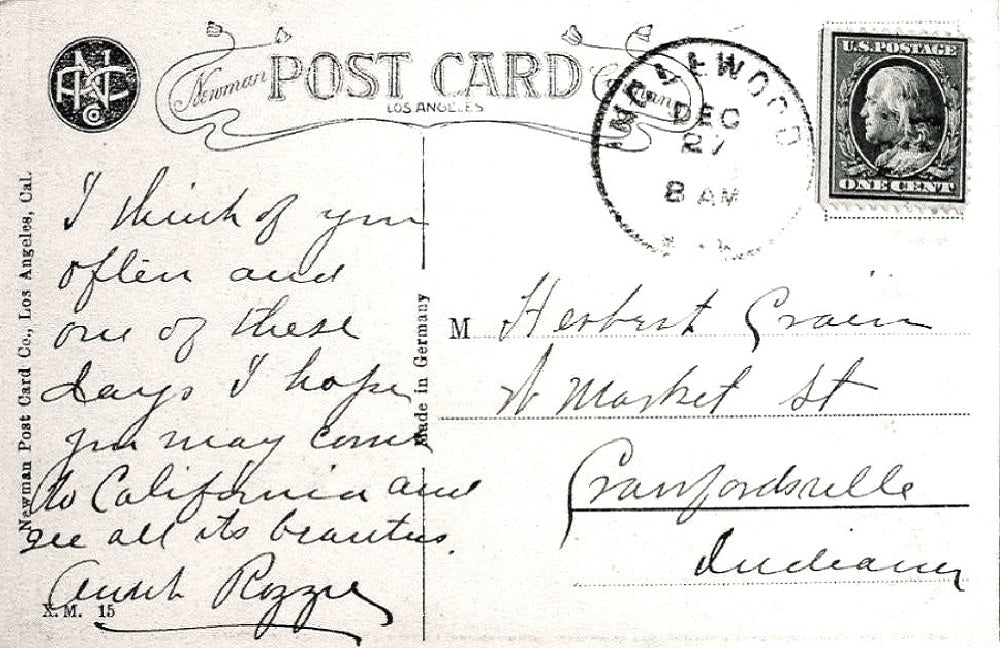 Newman POST CARD
LOS ANGELES
INGLEWOOD
DEC
27
8 AM
U.S. POSTAGE
ONE CENT
Newman Post Card Co., Los Angeles, Cal.
Made in Germany
I think of you
often and
one of these
days I hope
you may come
to California and
see all its beauties.
Aunt
X.M. 15
M Herbert
W Market St
Crawfordsville
Indiana